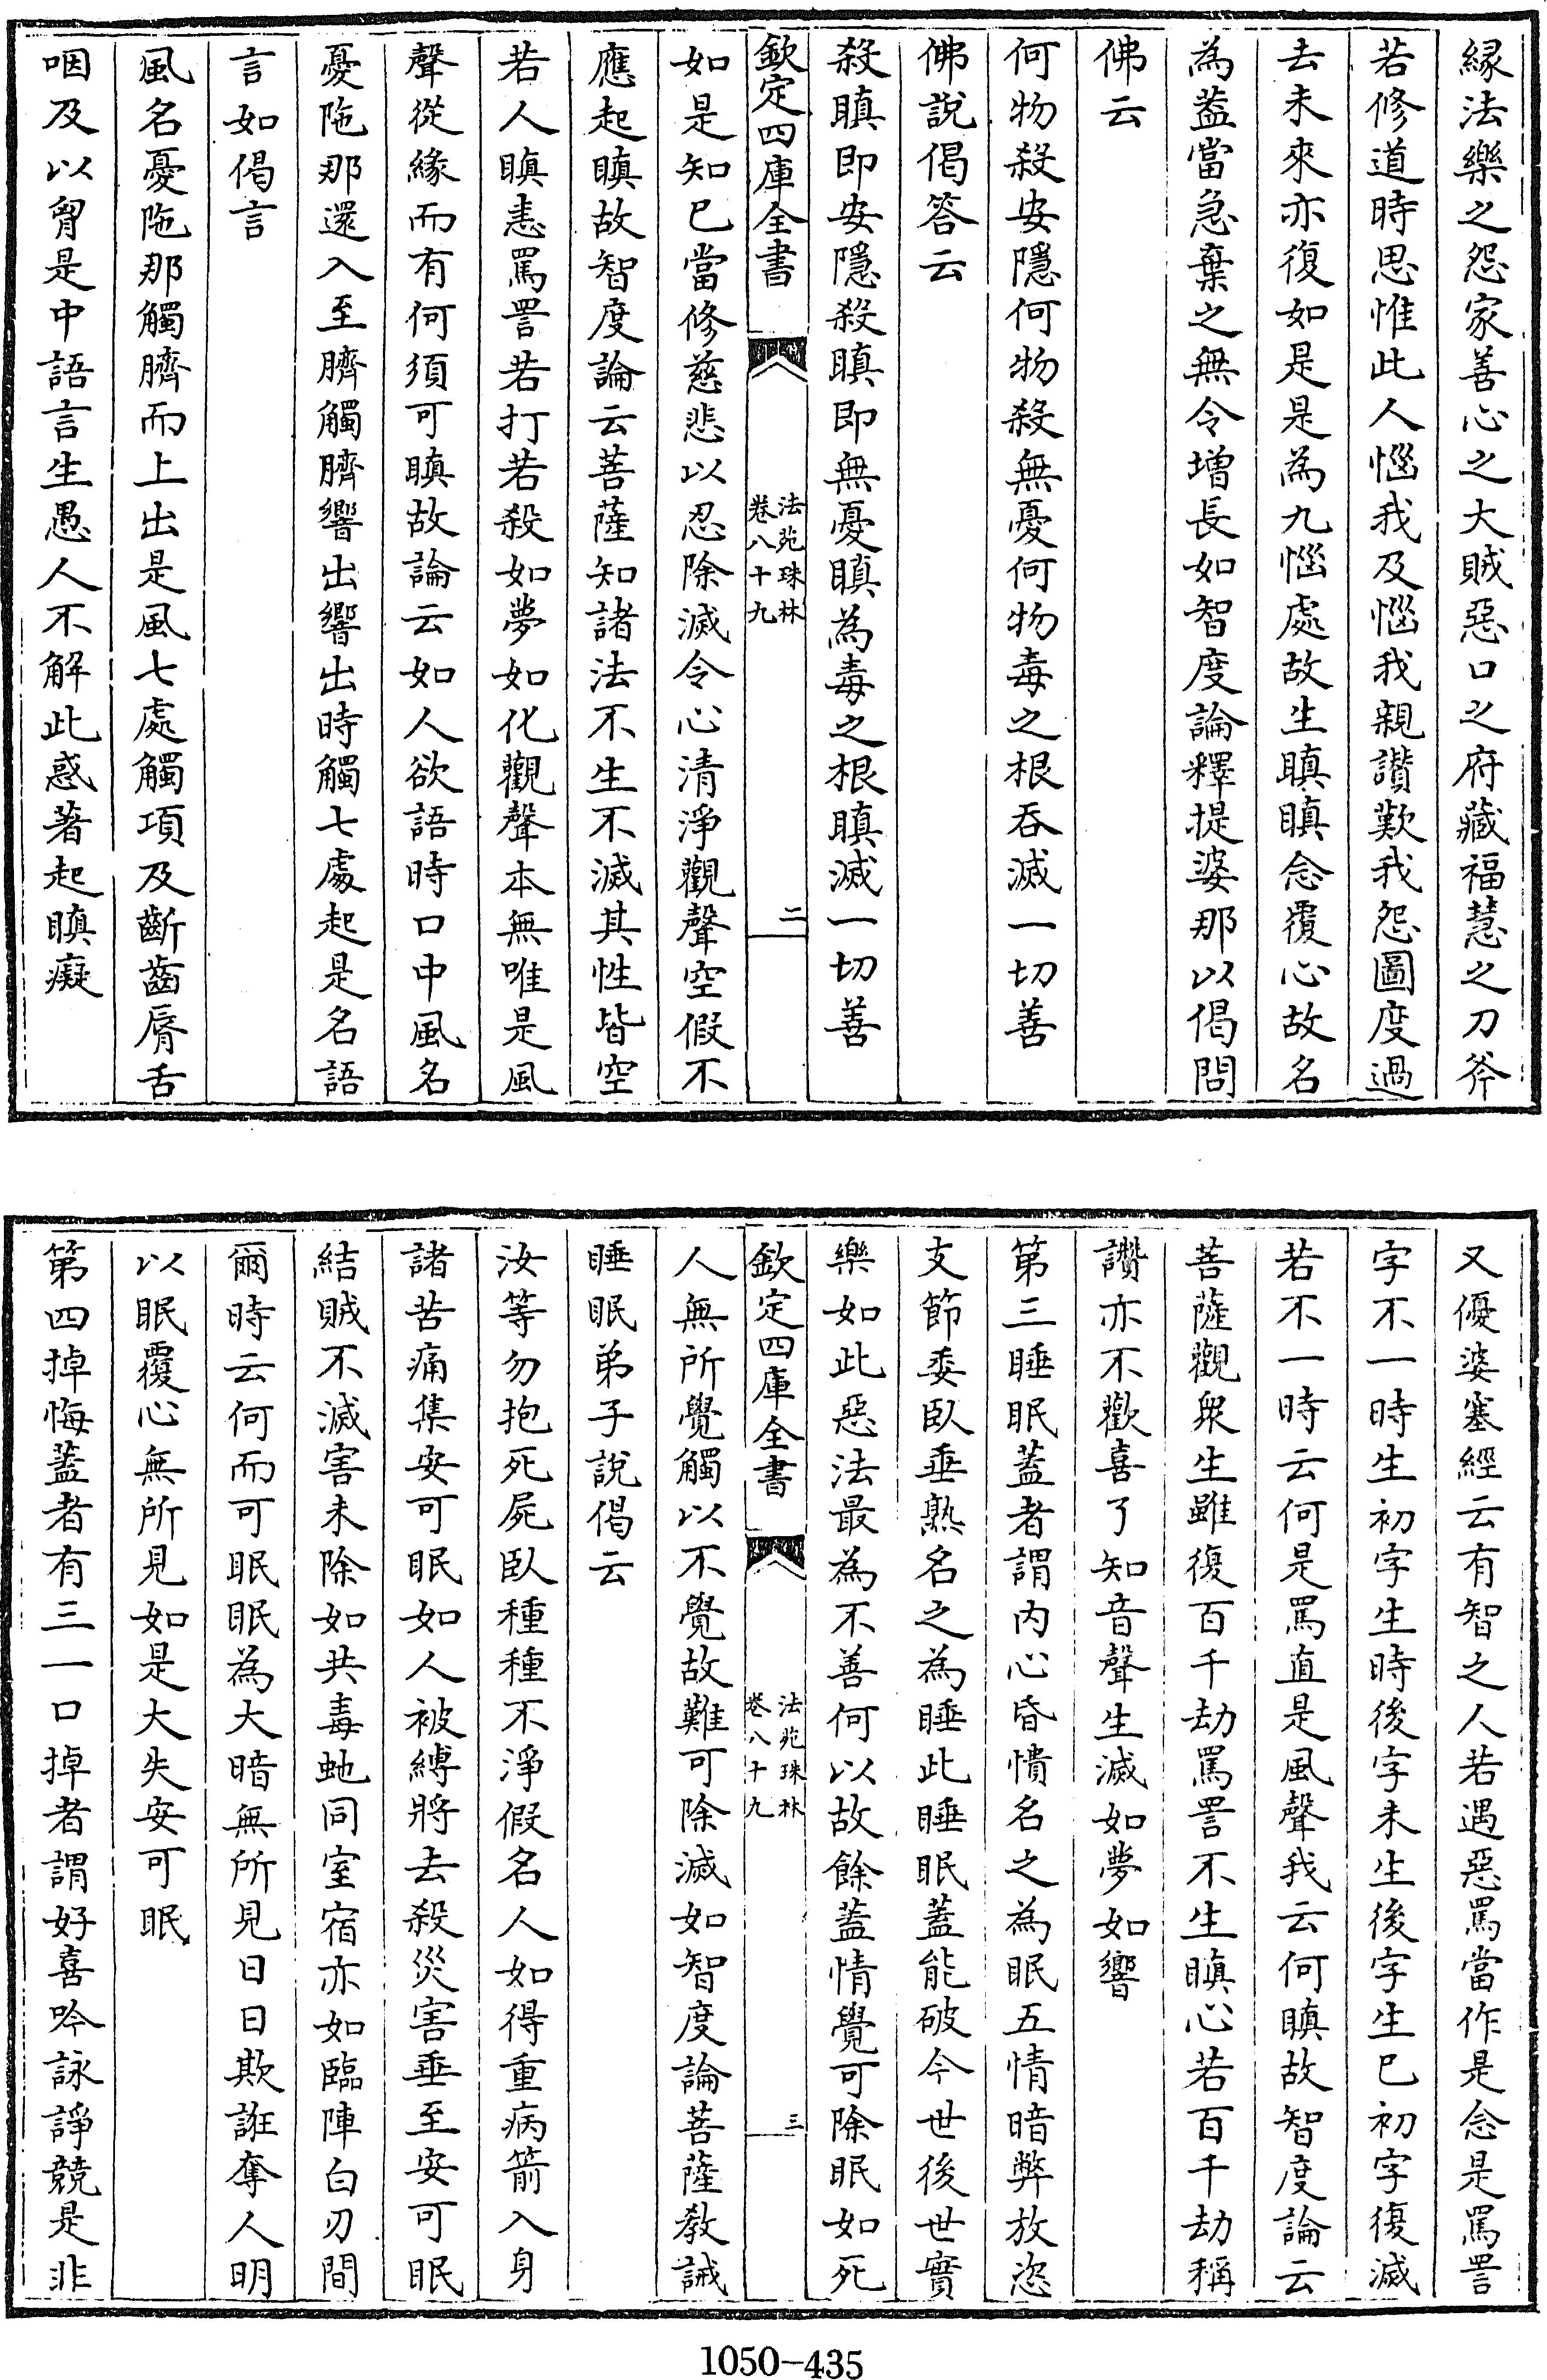 縁法樂之怨家善心之大賊惡口之府藏福慧之刀斧
若修道時思惟此人惱我及惱我親讃歎我怨圖度過
去未來亦復如是是為九惱處故生瞋瞋念覆心故名
為葢當急棄之無令增長如智度論釋提婆那以偈問
佛云
何物殺安隱何物殺無憂何物毒之根吞滅一切善
佛說偈答云
殺瞋即安隱殺瞋即無憂瞋為毒之根瞋滅一切善
欽定四庫全書
法苑珠林
卷八十九
二
如是知已當修慈悲以忍除滅令心清淨觀聲空假不
應起瞋故智度論云菩薩知諸法不生不滅其性皆空
若人瞋恚罵詈若打若殺如夢如化觀聲本無唯是風
聲從緣而有何須可瞋故論云如人欲語時口中風名
憂陁那還入至臍觸臍響出響出時觸七處起是名語
言如偈言
風名憂陁那觸臍而上出是風七處觸項及齗齒脣舌
咽及以胷是中語言生愚人不解此惑著起瞋癡
又優婆塞經云有智之人若遇惡罵當作是念是罵詈
字不一時生初字生時後字未生後字生已初字復滅
若不一時云何是罵直是風聲我云何瞋故智度論云
菩薩觀衆生雖復百千劫罵詈不生瞋心若百千劫稱
讚亦不歡喜了知音聲生滅如夢如響
第三睡眠蓋者謂内心昏憒名之為眠五情暗弊放恣
支節委臥垂熟名之為睡此睡眠蓋能破今世後世實
樂如此惡法最為不善何以故餘蓋情覺可除眠如死
欽定四庫全書
法苑珠林
卷八十九
三
人無所覺觸以不覺故難可除滅如智度論菩薩教誡
睡眠弟子說偈云
汝等勿抱死屍臥種種不淨假名人如得重病箭入身
諸苦痛集安可眠如人被縛將去殺災害垂至安可眠
結賊不滅害未除如共毒虵同室宿亦如臨陣白刃間
爾時云何而可眠眠為大暗無所見日日欺誑奪人明
以眠覆心無所見如是大失安可眠
第四掉悔蓋者有三一口掉者謂好喜吟詠諍競是非
1050-435